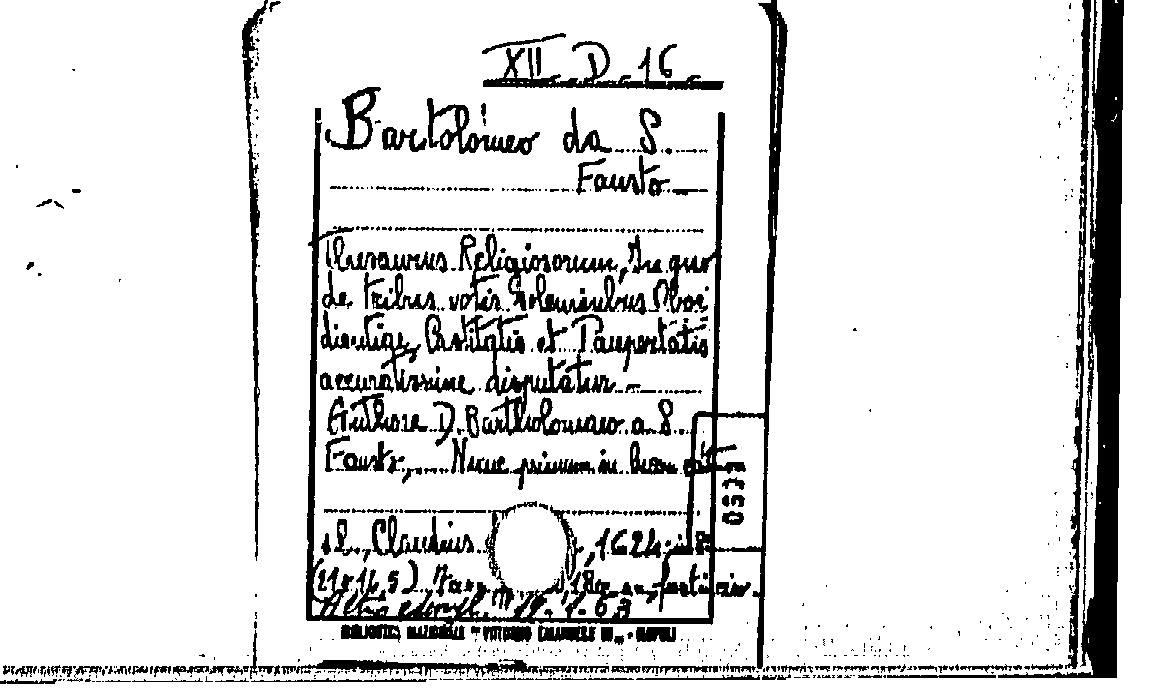 XII D 16
Bartolomeo da S.
Fausto
Thesaurus Religiosorum, In quo
de tribus votis Solemnibus Oboe
dientiae, Castitatis et Paupertatis
accuratissime disputatur
Authore D. Bartholomaeo a S.
Fausto, Nunc primum in lucem
s.l., Claudius , 1624
Altro esempl. 19.1.63
BIBLIOTECA NAZIONALE "VITTORIO EMANUELE III" - NAPOLI